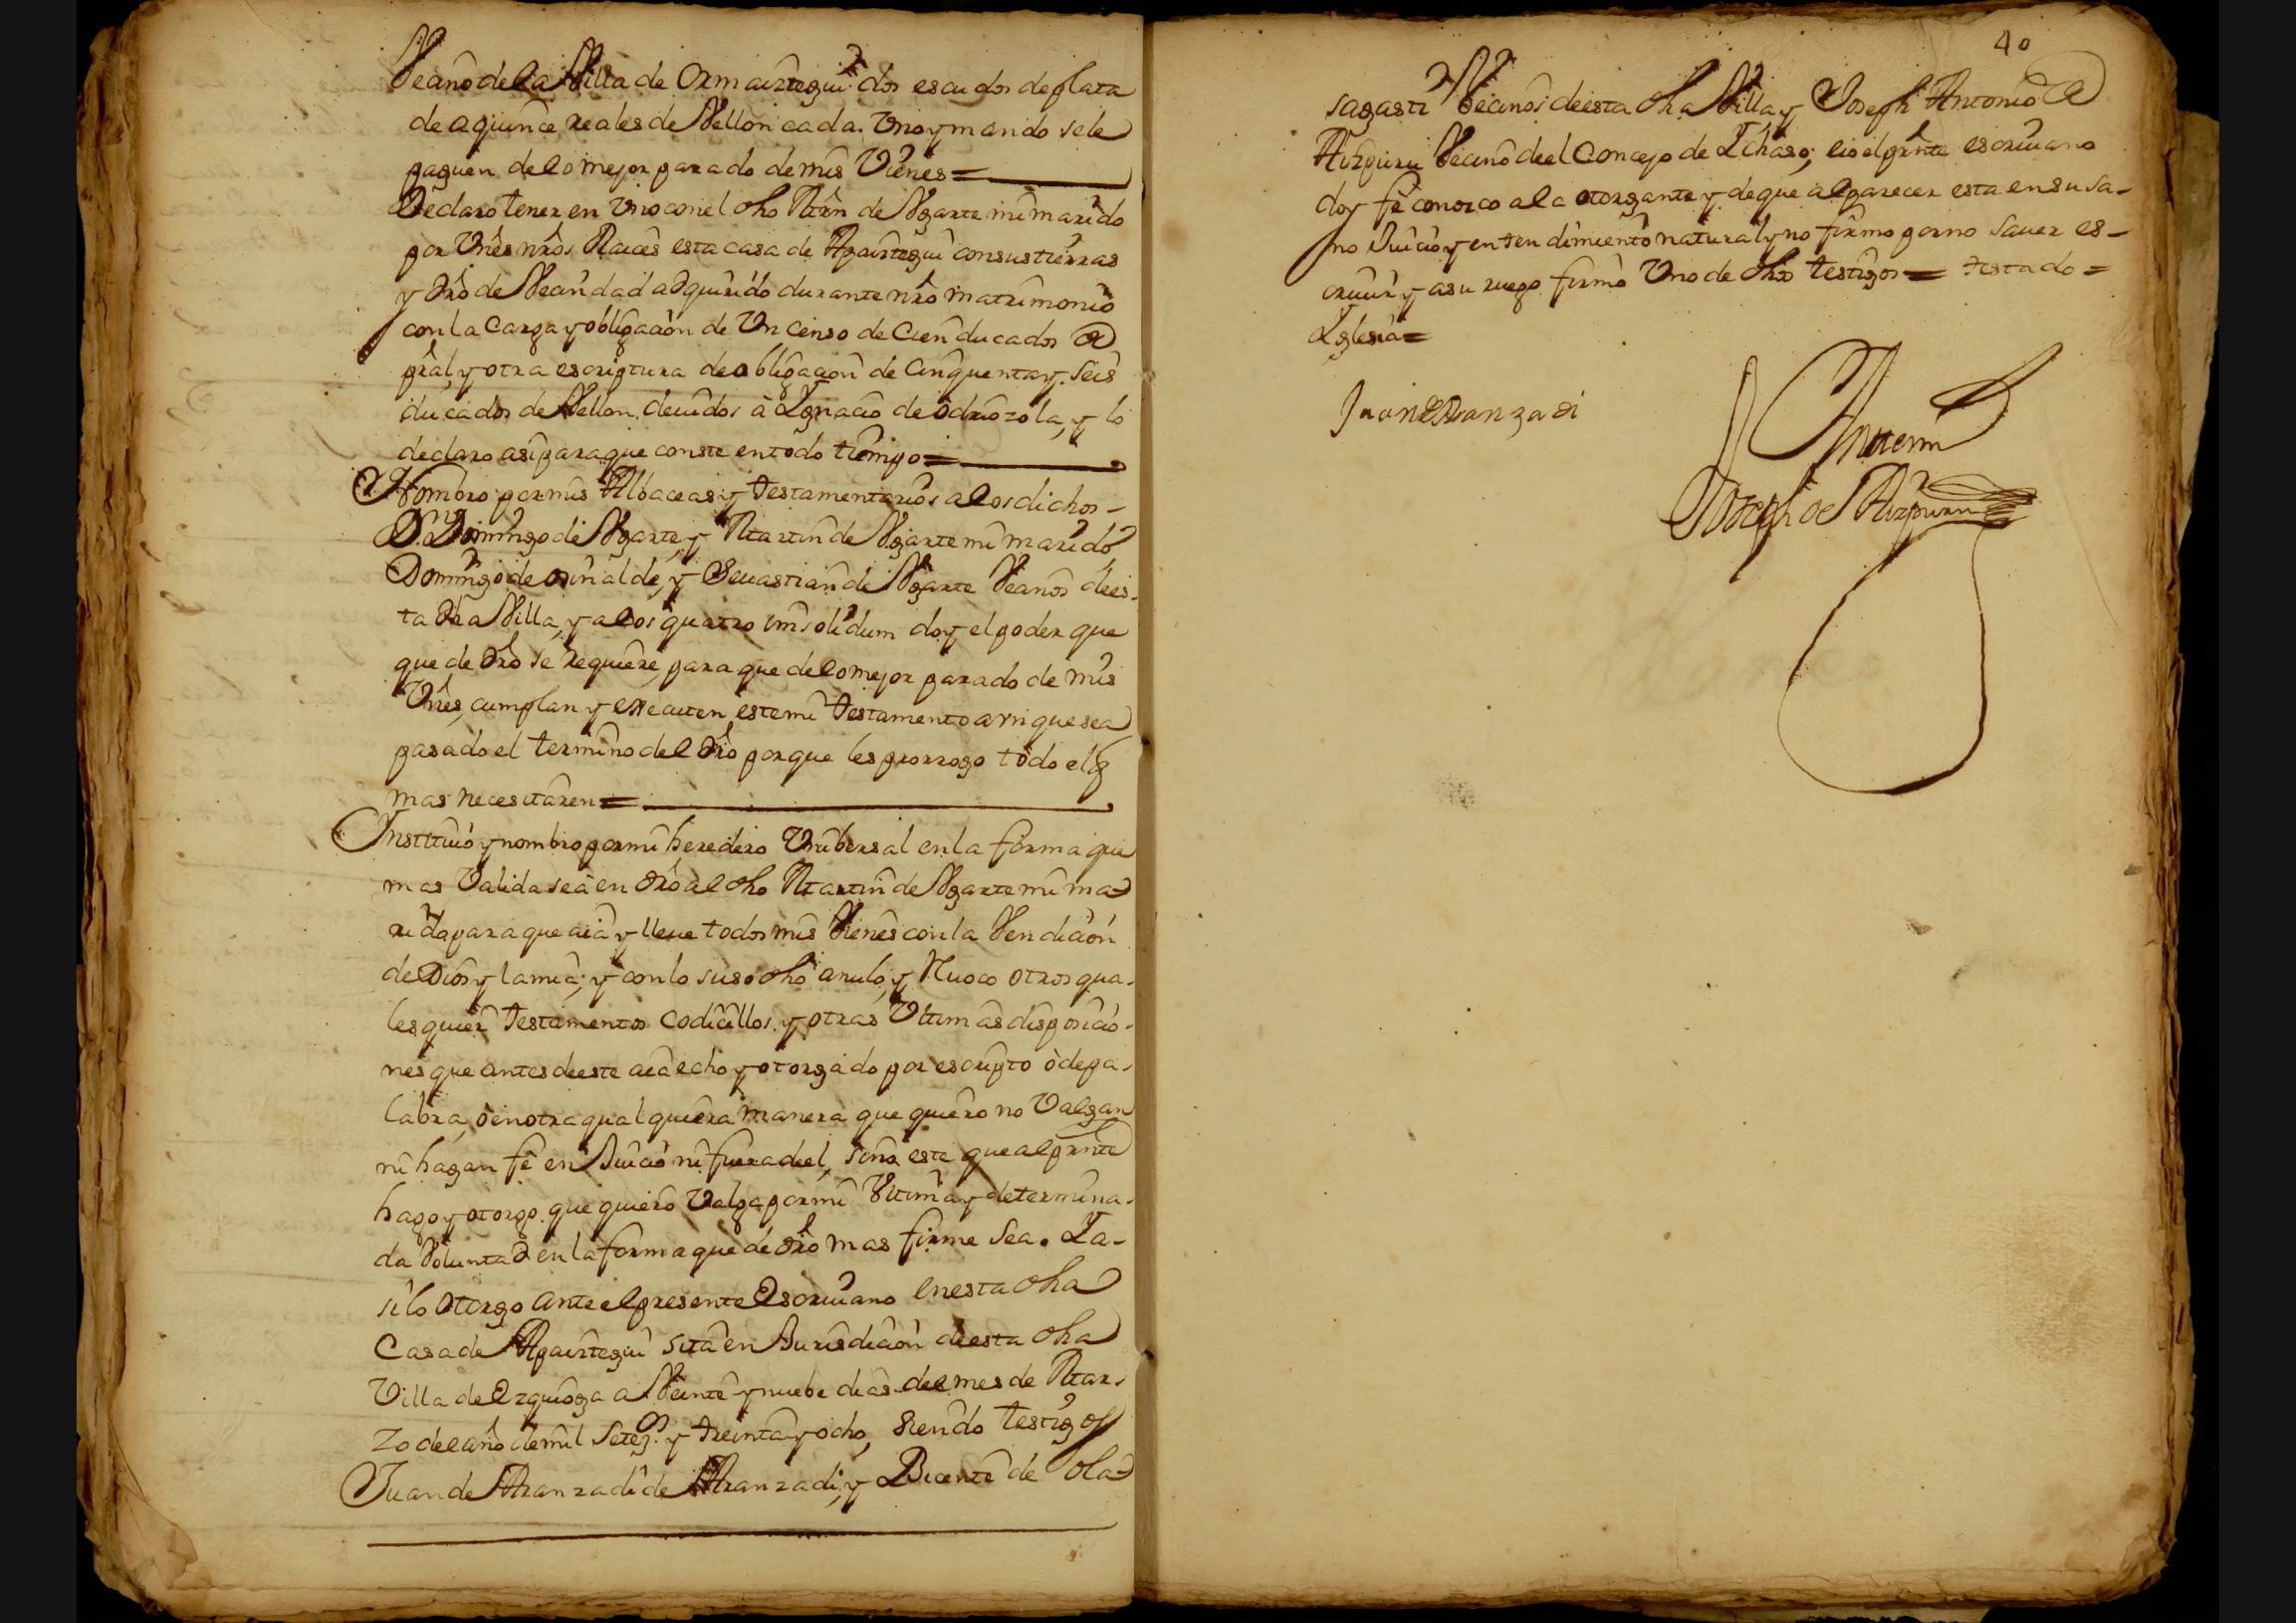 Vecino de la Villa de Ormaiztegui dos escudos de plata
de a quince reales de Vellon cada Uno y mando se le
paguen de lo mejor parado de mis Vienes =
Declaro tener en Uno con el dho Mrn de Ugarte mi marido
por Vnes nros Raices esta casa de Apaiztegui con sus tierras
y dro de Vecindad adquirido durante nro matrimonio
con la Carga y obligacion de Un censo de Cien ducados de
pral, y otra escriptura de obligacion de Cinquenta y Seis
ducados de Vellon, deuidos à Ygnacio de Odriozola, y lo
declaro asi para que conste en todo tiempo =
Nombro por mis Albaceas y testamentarios a los dichos
Dn Domingo de Ugarte, y Martin de Ugarte mi marido
Domingo de Orinalde, y Seuastian de Ugarte Vecinos de es-
ta dha Villa, y a los quatro imsolidum doy el poder que
que de dro se requiere, para que de lo mejor parado de mis
Vnes, cumplan y executen este mi testamento aunque sea
pasado el termino del dro porque les prorrogo todo el q
mas necesitaren =
Instituio y nombro por mi heredero Unibersal en la forma que
mas Valida sea en dro al dho Martin de Ugarte mi ma-
rido para que aia y lleue todos mis Vienes con la Vendicion
de Dios y la mia; y con lo suso dho anulo, y Reuoco otros qua-
lesquier testamentos Codicillos, y otras Ultimas disposicio-
nes que antes de este aia echo y otorgado por escripto ò de pa-
labra, ò en otra qualquiera manera que quiero no Valgan
ni hagan fê en Juicio ni fuera de el, sino este que al prnte
hago y otorgo que quiero Valga por mi Vltima y determina-
da Voluntad en la forma que de dro mas firme Sea. Ya-
si lo otorgo ante el presente Escriuano en esta dha
Casa de Apaiztegui sita en Jurisdicion de esta dha
Villa de Ezquioga a Veinte y nuebe dias del mes de Mar-
zo del año de mil Setezs y treinta y ocho, siendo testigos
Juan de Aranzadi de Aranzadi, y Bicente de Ola-
40
sagasti Vecinos de esta dha Villa y Joseph Antonio de
Aizpuru Vecino de el Concejo de Ychaso; e io el prnte escriuano
doy fê conozco a la otorgante y de que al parecer esta en su sa-
no Juicio y entendimiento natural y no firmo por no Sauer es-
criuir y a su ruego firmò Uno de dhos testigos = testado =
Yglesia =
Juan de Aranzadi
Antemi
Joseph de Aizpuru